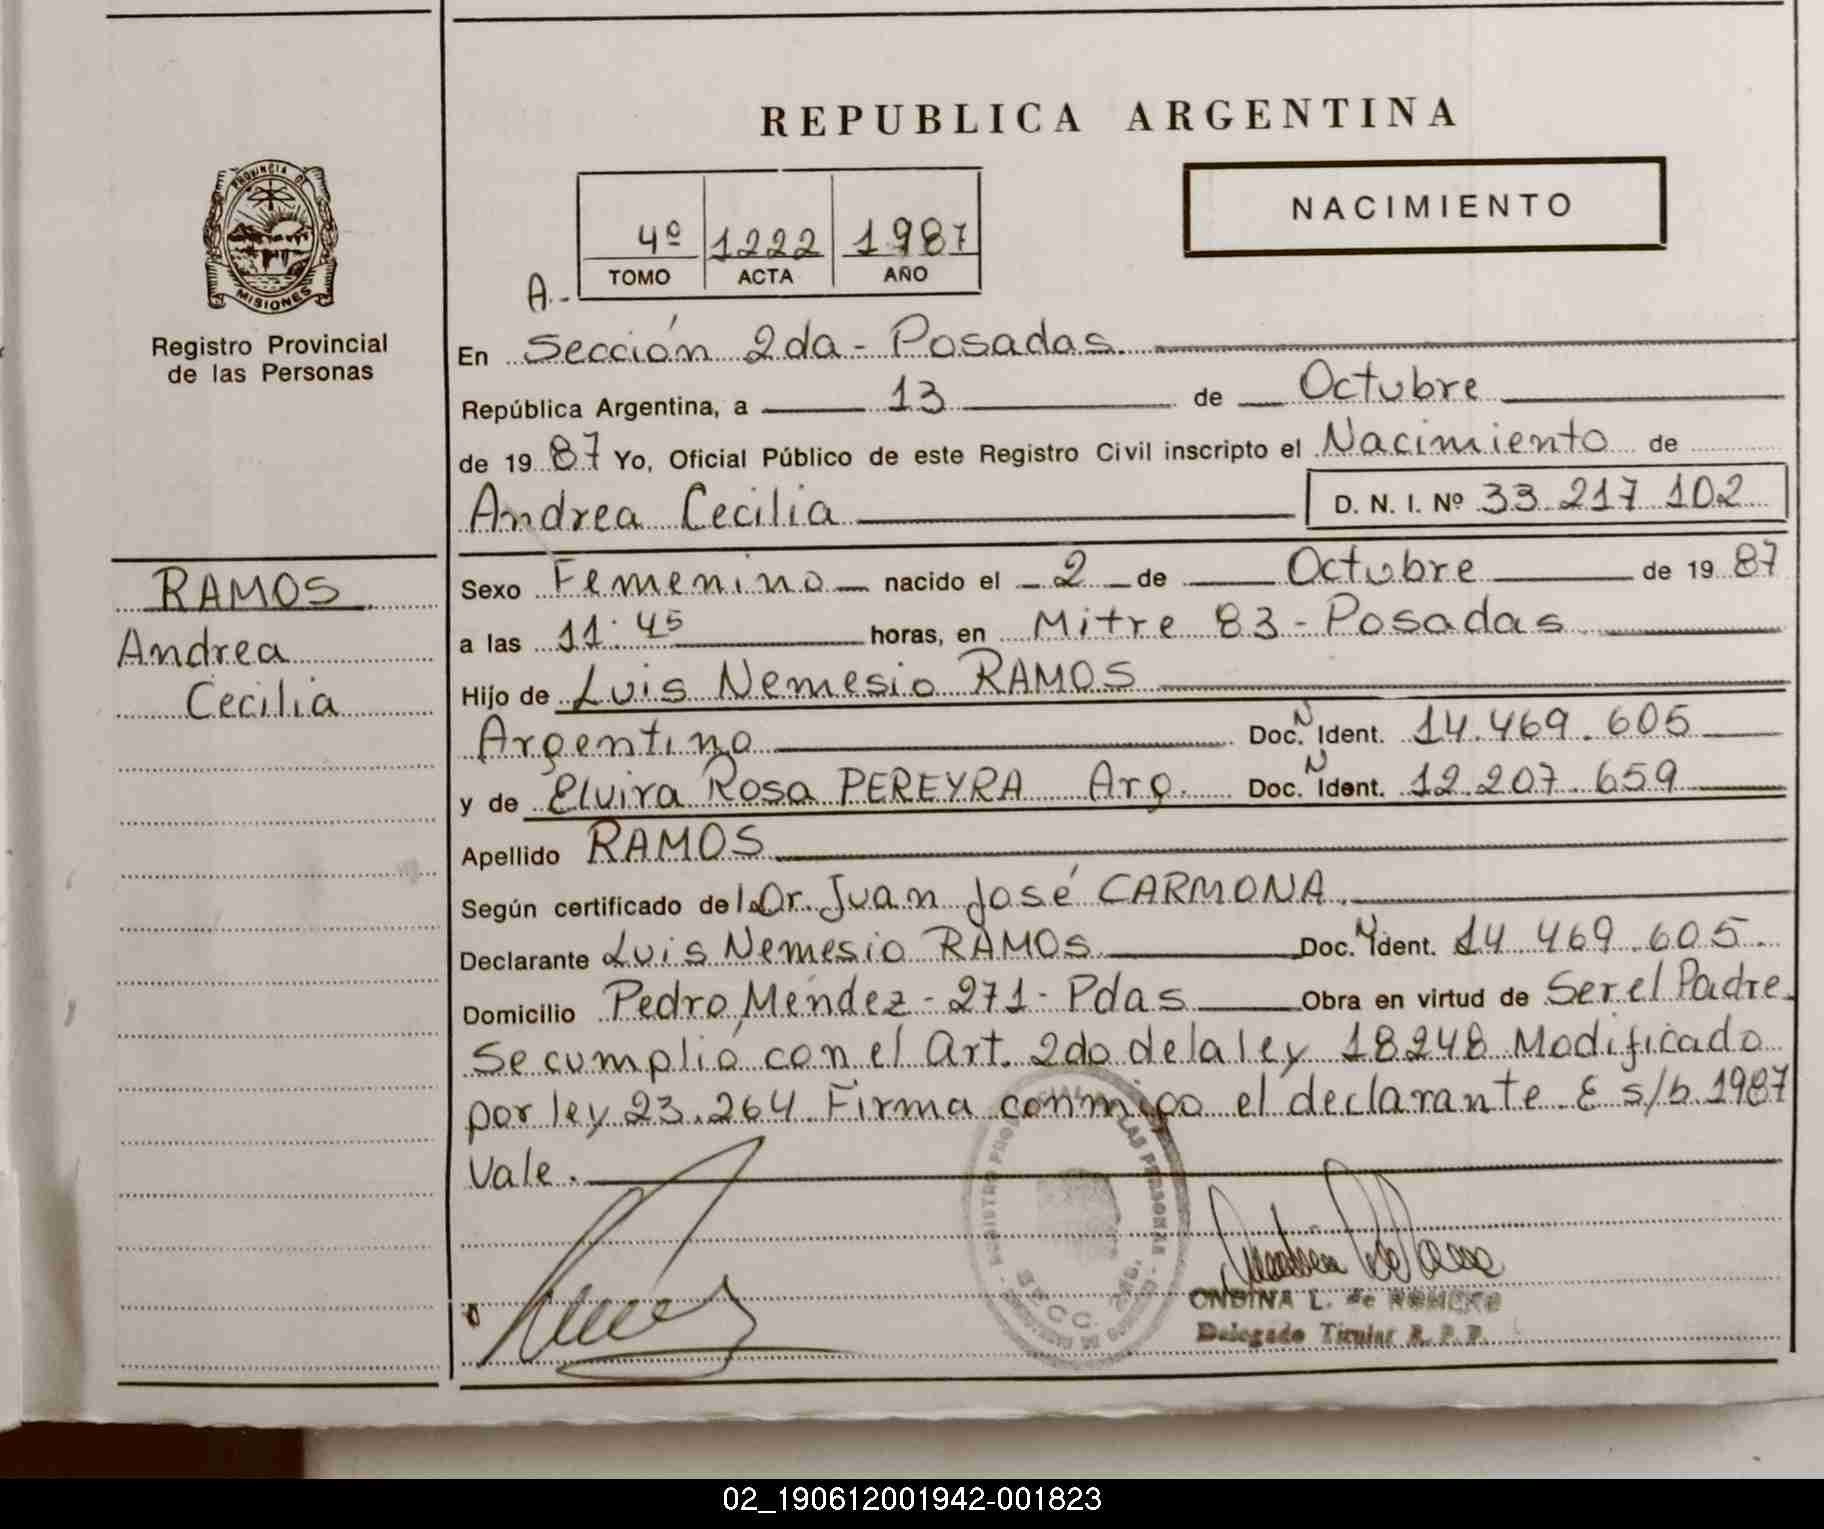 REPUBLICA ARGENTINA
NACIMIENTO
4º 1222 1987
TOMO ACTA AÑO
A.-
PROVINCIA DE
MISIONES
Registro Provincial
de las Personas
En Sección 2da - Posadas.
República Argentina, a 13 de Octubre
de 1987 Yo, Oficial Público de este Registro Civil inscripto el Nacimiento de
Andrea Cecilia D. N. I. Nº 33.217.102
RAMOS
Andrea
Cecilia
Sexo Femenino nacido el 2 de Octubre de 1987
a las 11:45 horas, en Mitre 83 - Posadas
Hijo de Luis Nemesio RAMOS
Argentino Doc. N Ident. 14.469.605
y de Elvira Rosa PEREYRA Arg. Doc. N Ident. 12.207.659
Apellido RAMOS
Según certificado del Dr. Juan José CARMONA.
Declarante Luis Nemesio RAMOS Doc. N Ident. 14.469.605.
Domicilio Pedro Méndez - 271 - Pdas Obra en virtud de Ser el Padre.
Se cumplió con el Art. 2do de la ley 18248 Modificado
por ley 23.264. Firma conmigo el declarante. E s/b. 1987
Vale.
ONDINA L. de
Delegado Titular R. P. P.
02_190612001942-001823